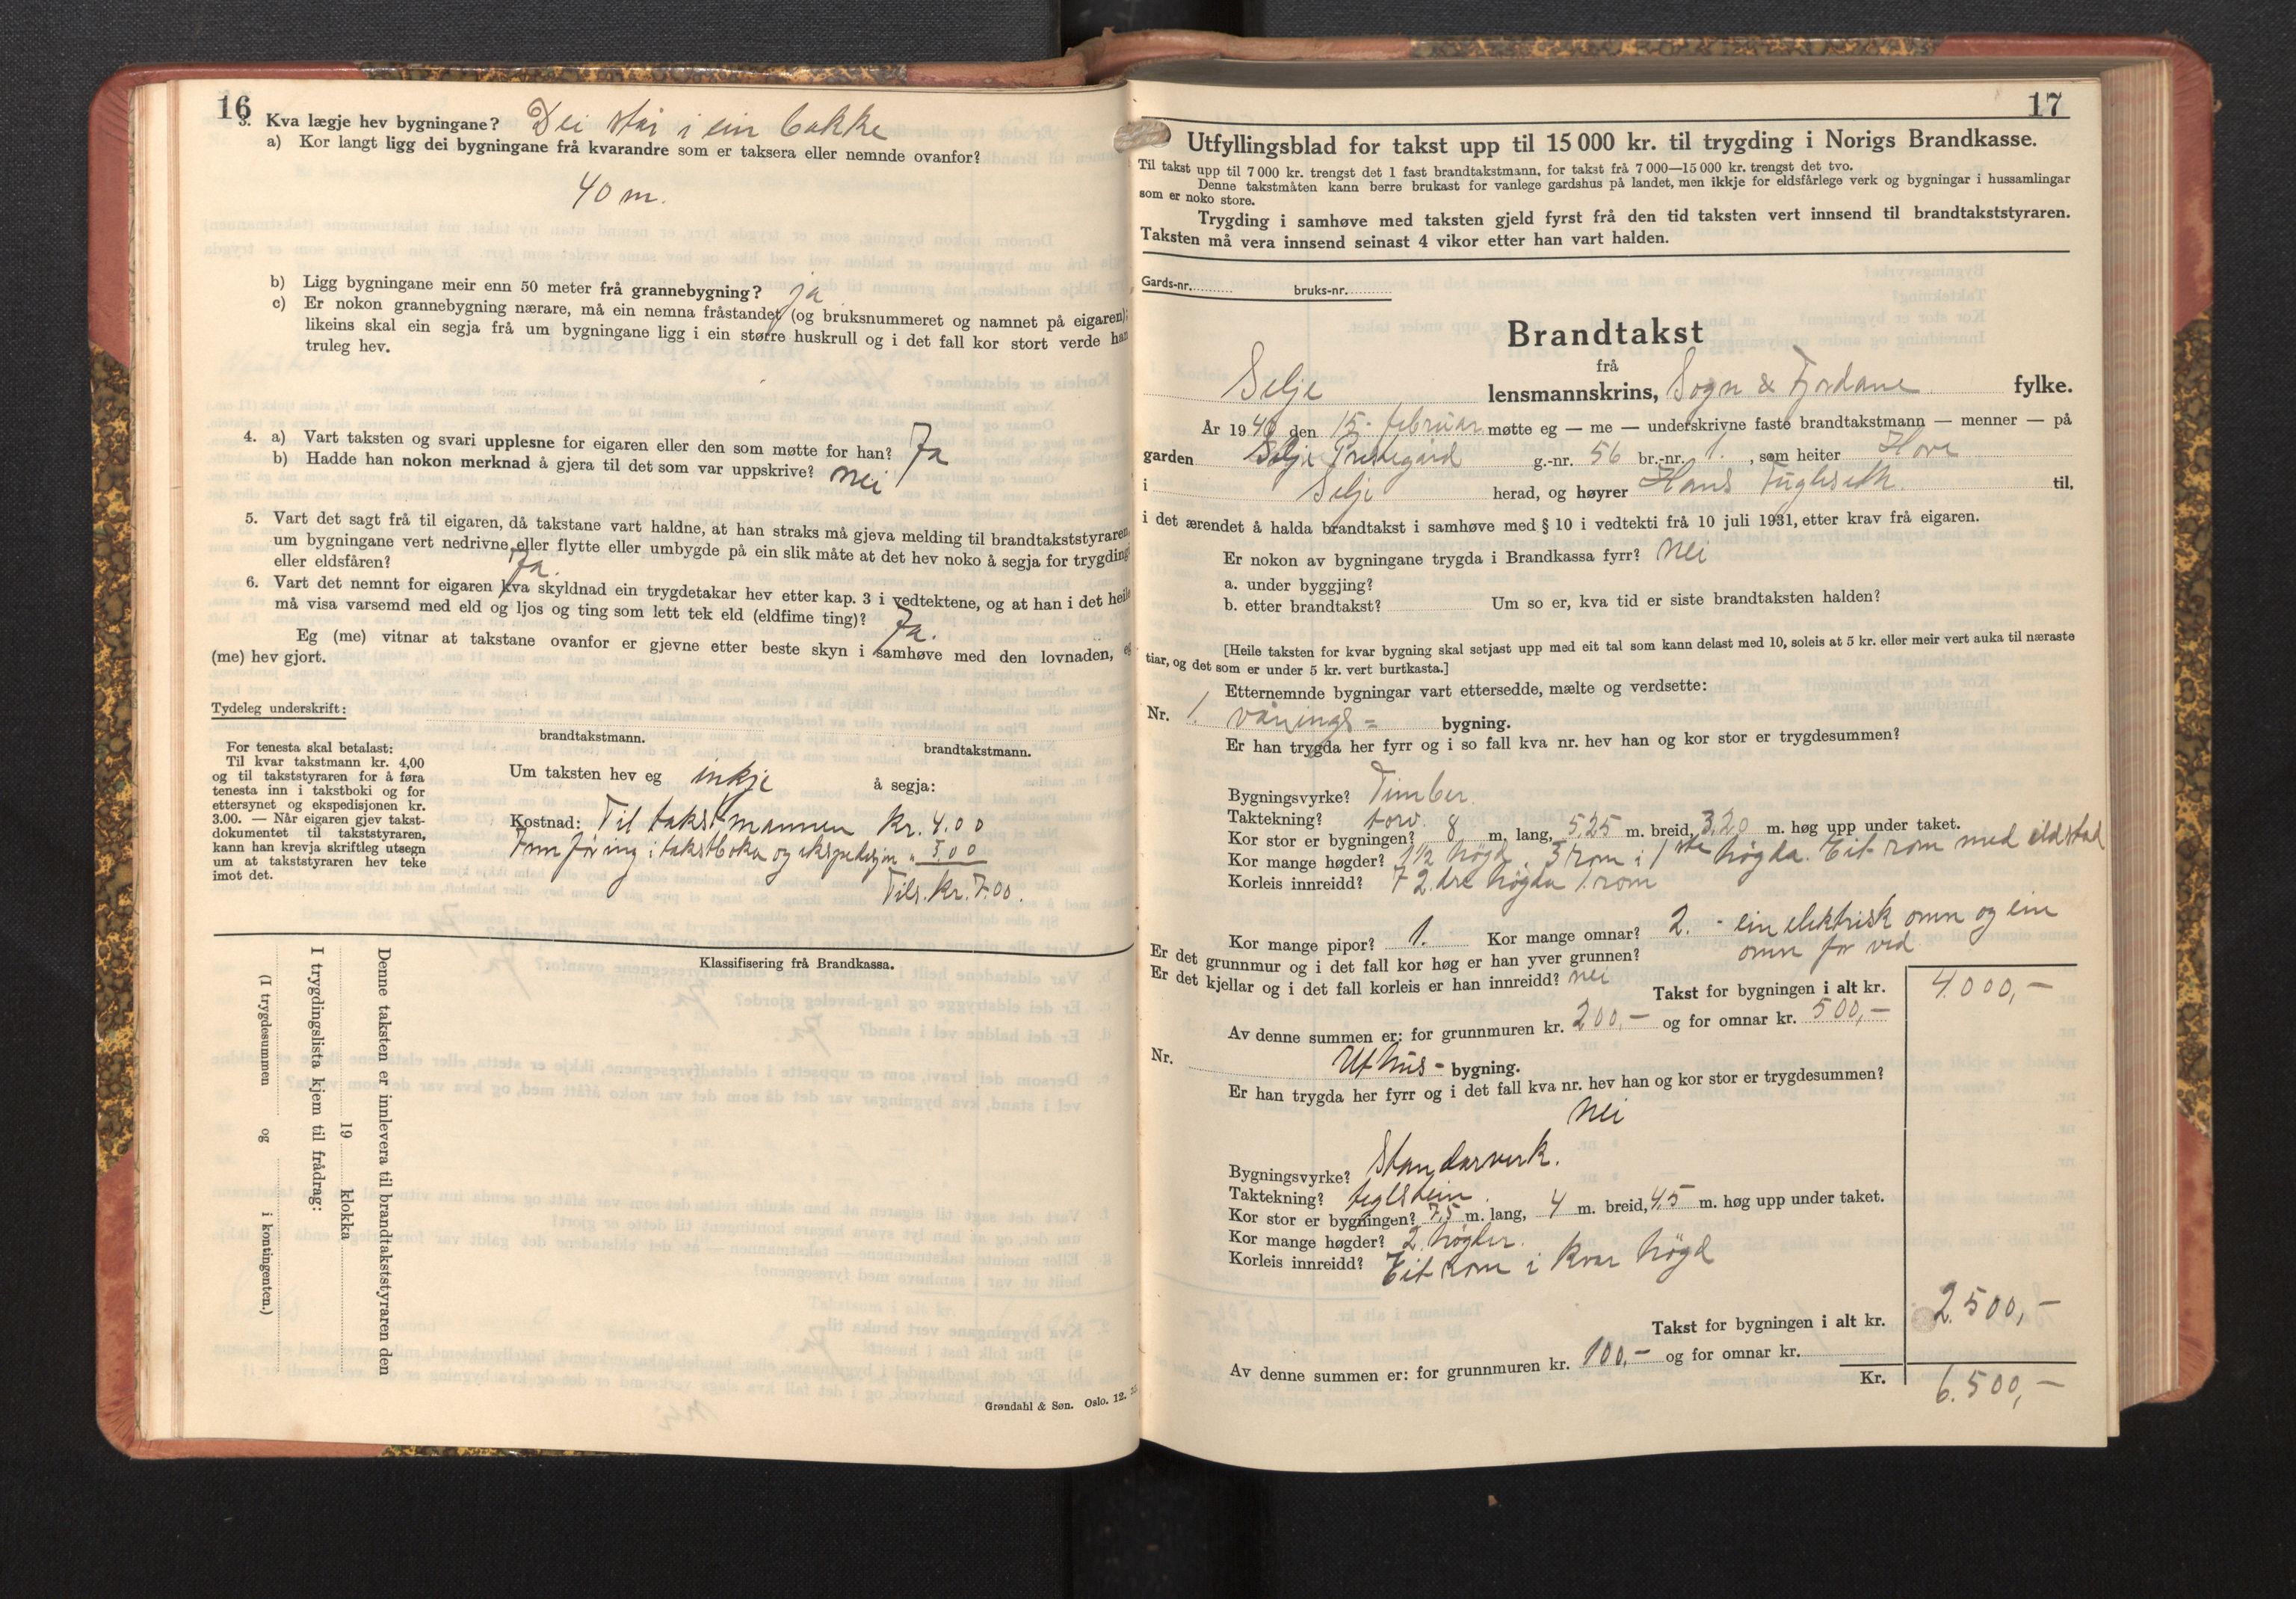 16
3. Kva lægje hev bygningane? Dei står i ein bakke
a) Kor langt ligg dei bygningane frå kvarandre som er taksera eller nemnde ovanfor?
40 m.
b) Ligg bygningane meir enn 50 meter frå grannebygning? ja
c) Er nokon grannebygning nærare, må ein nemna fråstandet (og bruksnummeret og namnet på eigaren);
likeins skal ein segja frå um bygningane ligg i ein større huskrull og i det fall kor stort verde han
truleg hev.
4. a) Vart taksten og svari upplesne for eigaren eller den som møtte for han? Ja
b) Hadde han nokon merknad å gjera til det som var uppskrive? nei
5. Vart det sagt frå til eigaren, då takstane vart haldne, at han straks må gjeva melding til brandtakststyraren,
um bygningane vert nedrivne eller flytte eller umbygde på ein slik måte at det hev noko å segja for trygding
eller eldsfåren? Ja.
6. Vart det nemnt for eigaren kva skyldnad ein trygdetakar hev etter kap. 3 i vedtektene, og at han i det heile
må visa varsemd med eld og ljos og ting som lett tek eld (eldfime ting)? Ja.
Eg (me) vitnar at takstane ovanfor er gjevne etter beste skyn i samhøve med den lovnaden, eg
(me) hev gjort.
Tydeleg underskrift:
brandtakstmann. brandtakstmann.
For tenesta skal betalast:
Til kvar takstmann kr. 4,00
og til takststyraren for å føra
tenesta inn i takstboki og for
ettersynet og ekspedisjonen kr.
3.00. — Når eigaren gjev takst-
dokumentet til takststyraren,
kann han krevja skriftleg utsegn
um at takststyraren hev teke
imot det.
Um taksten hev eg inkje å segja:
Kostnad: Til takstmannen Kr. 4.00
Innføring i takstboka og ekspedisjon " 3.00
Tils. Kr. 7.00.
Klassifisering frå Brandkassa.
Denne taksten er innlevera til brandtakststyraren den
19 klokka
I trygdingslista kjem til frådrag:
(I trygdesummen og i kontingenten.)
Grøndahl & Søn. Oslo. 12.
17
Utfyllingsblad for takst upp til 15 000 kr. til trygding i Norigs Brandkasse.
Til takst upp til 7 000 kr. trengst det 1 fast brandtakstmann, for takst frå 7 000—15 000 kr. trengst det tvo.
Denne takstmåten kann berre brukast for vanlege gardshus på landet, men ikkje for eldsfårlege verk og bygningar i hussamlingar
som er noko store.
Trygding i samhøve med taksten gjeld fyrst frå den tid taksten vert innsend til brandtakststyraren.
Taksten må vera innsend seinast 4 vikor etter han vart halden.
Gards-nr. bruks-nr.
Brandtakst
frå
Selje lensmannskrins, Sogn & Fjordane fylke.
År 1940 den 15. februar møtte eg — me — underskrivne faste brandtakstmann — menner — på
garden Selje Prestegard g.-nr. 56 br.-nr. 1. , som heiter Hove
i Selje herad, og høyrer Hans Fuglseth til,
i det ærendet å halda brandtakst i samhøve med § 10 i vedtekti frå 10 juli 1931, etter krav frå eigaren.
Er nokon av bygningane trygda i Brandkassa fyrr? nei
a. under byggjing?
b. etter brandtakst? Um so er, kva tid er siste brandtaksten halden?
[Heile taksten for kvar bygning skal setjast upp med eit tal som kann delast med 10, soleis at 5 kr. eller meir vert auka til næraste
tiar, og det som er under 5 kr. vert burtkasta.]
Etternemnde bygningar vart ettersedde, mælte og verdsette:
Nr. 1. vånings= bygning.
Er han trygda her fyrr og i so fall kva nr. hev han og kor stor er trygdesummen?
Bygningsvyrke? Timber
Taktekning? torv.
Kor stor er bygningen? 8 m. lang, 5,25 m. breid, 3,20 m. høg upp under taket.
Kor mange høgder? 1 1/2 høgd. 3 rom i 1ste høgda. Eit rom med eldstad
Korleis innreidd? I 2.dre høgda 1 rom
Kor mange pipor? 1. Kor mange omnar? 2. - ein elektrisk omn og ein
omn for ved
Er det grunnmur og i det fall kor høg er han yver grunnen?
Er det kjellar og i det fall korleis er han innreidd? nei
Takst for bygningen i alt kr. 4.000,-
Av denne summen er: for grunnmuren kr. 200,- og for omnar kr. 500,-
Nr. Uthus- bygning.
Er han trygda her fyrr og i det fall kva nr. hev han og kor stor er trygdesummen?
nei
Bygningsvyrke? Standarverk.
Taktekning? teglstein.
Kor stor er bygningen? 7,5 m. lang, 4 m. breid, 4,5 m. høg upp under taket.
Kor mange høgder? 2 høgder.
Korleis innreidd? Eit rom i kvar høgd
Takst for bygningen i alt kr. 2.500,-
Av denne summen er: for grunnmuren kr. 100,- og for omnar kr.
Kr. 6.500,-